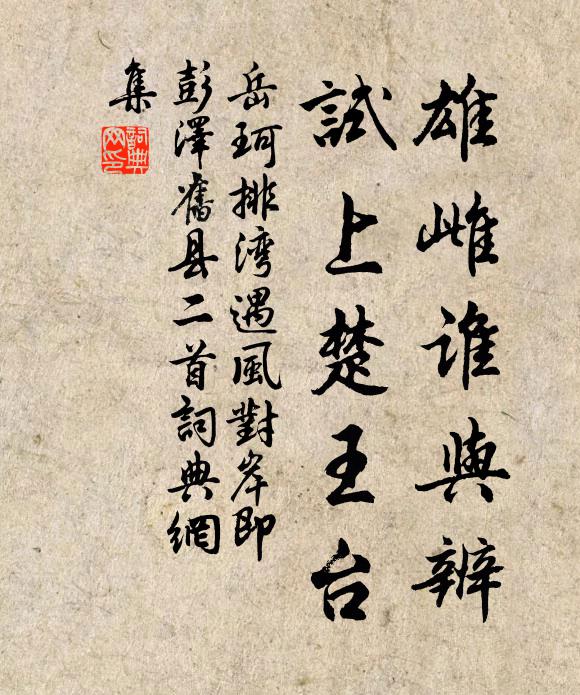 雄雌谁與辨
試上楚王台
岳珂排湾遇風對岸即
彭澤舊县二首詞典網
集
詞典
网印